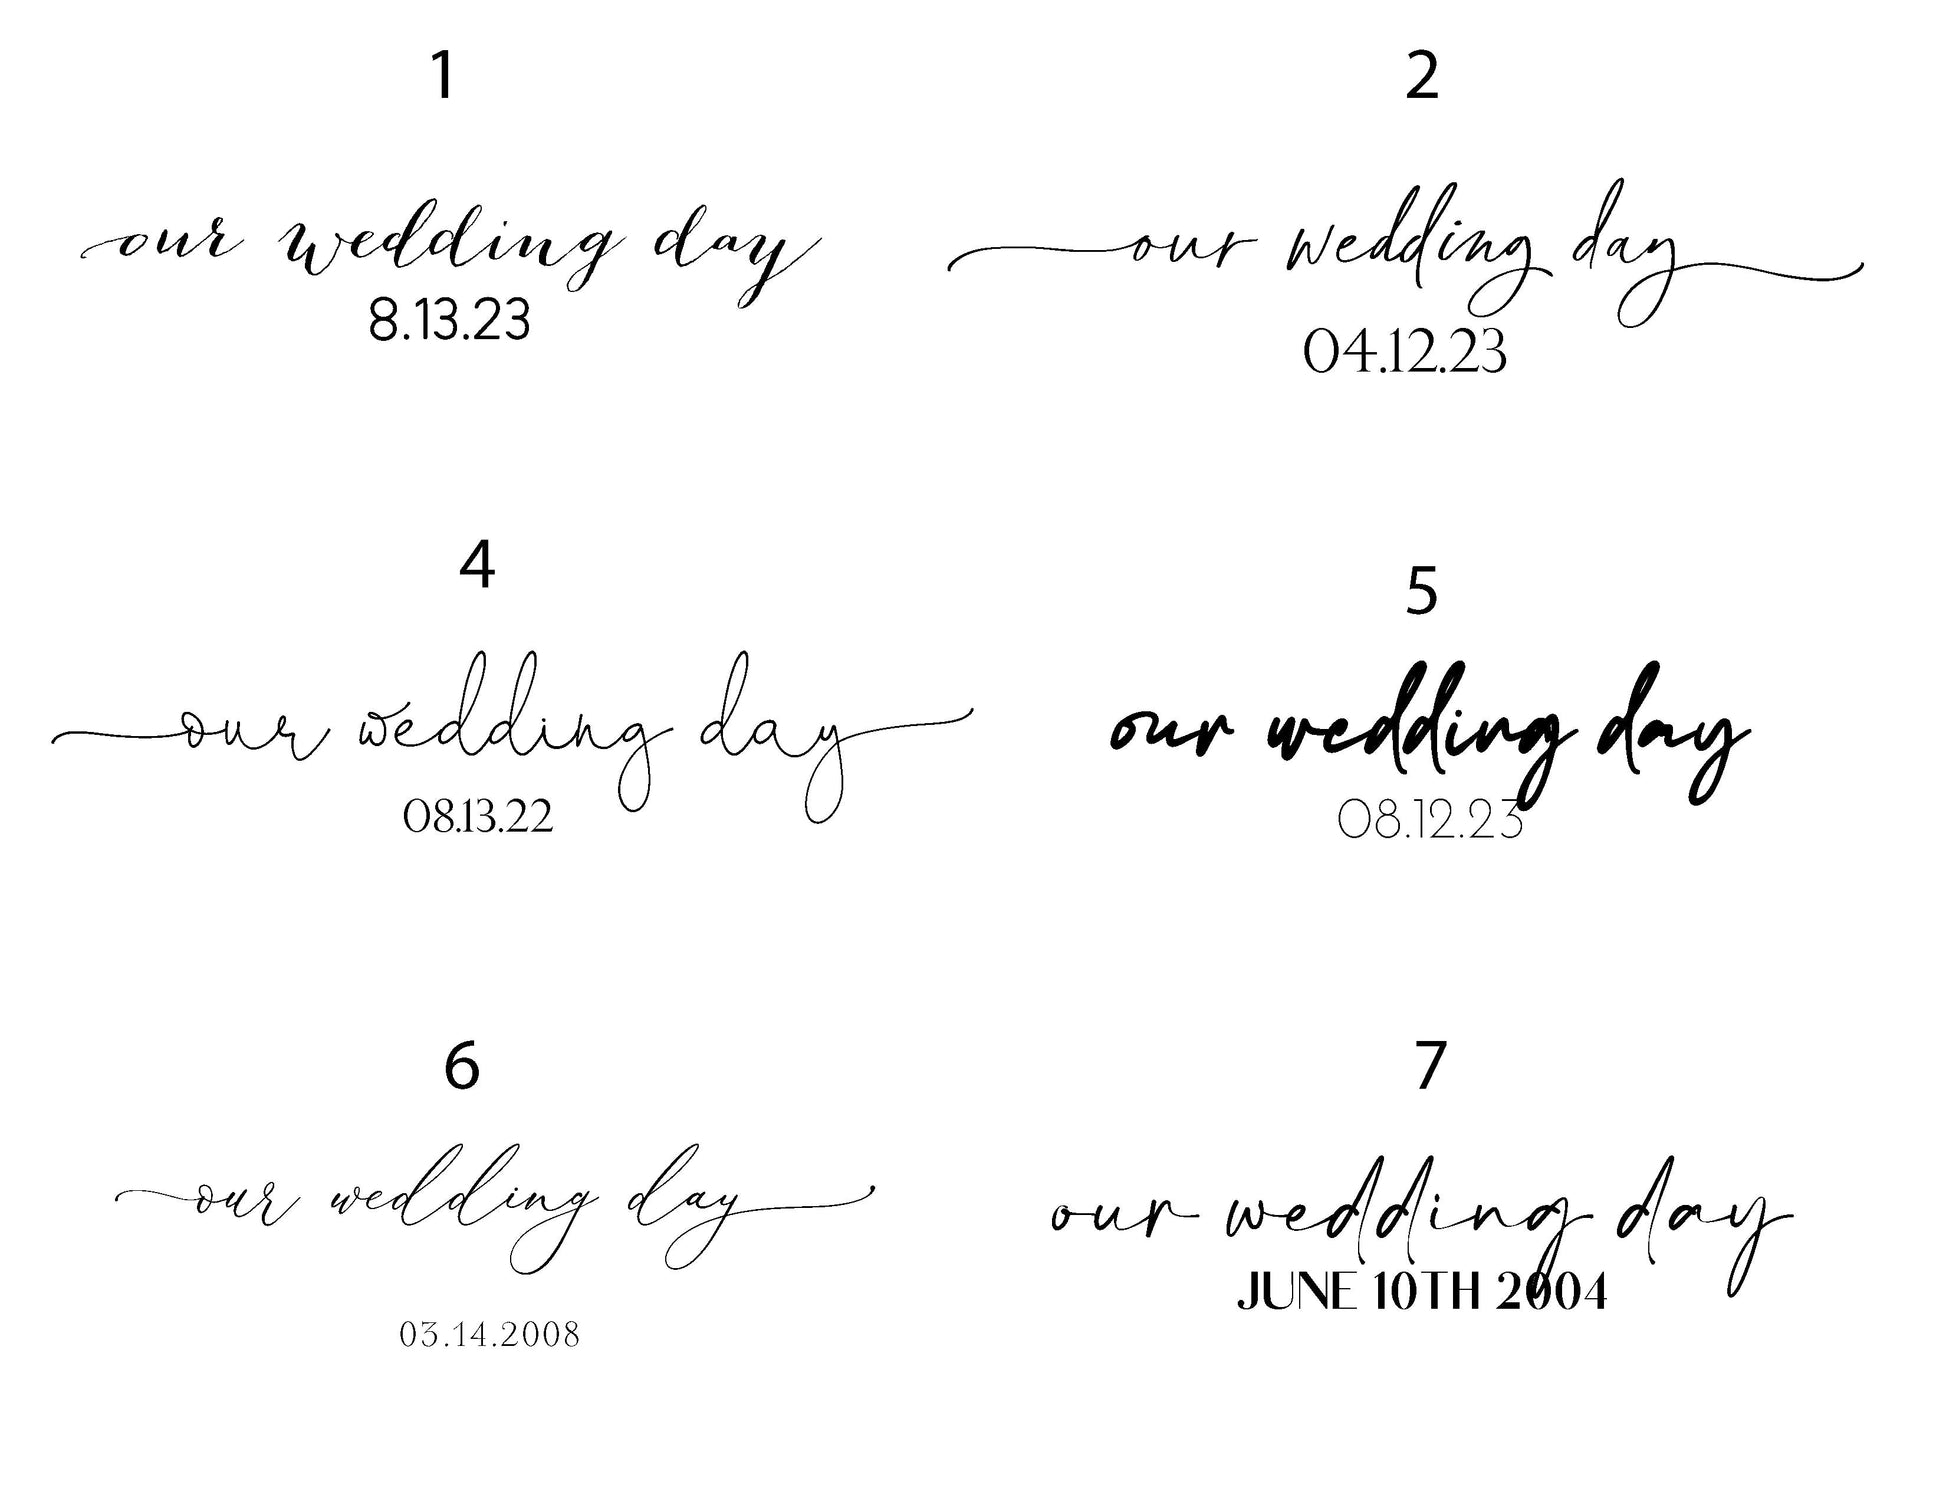 1
our wedding day
8.13.23
2
our wedding day
04.12.23
4
our wedding day
08.13.22
5
our wedding day
08.12.23
6
our wedding day
03.14.2008
7
our wedding day
JUNE 10TH 2004